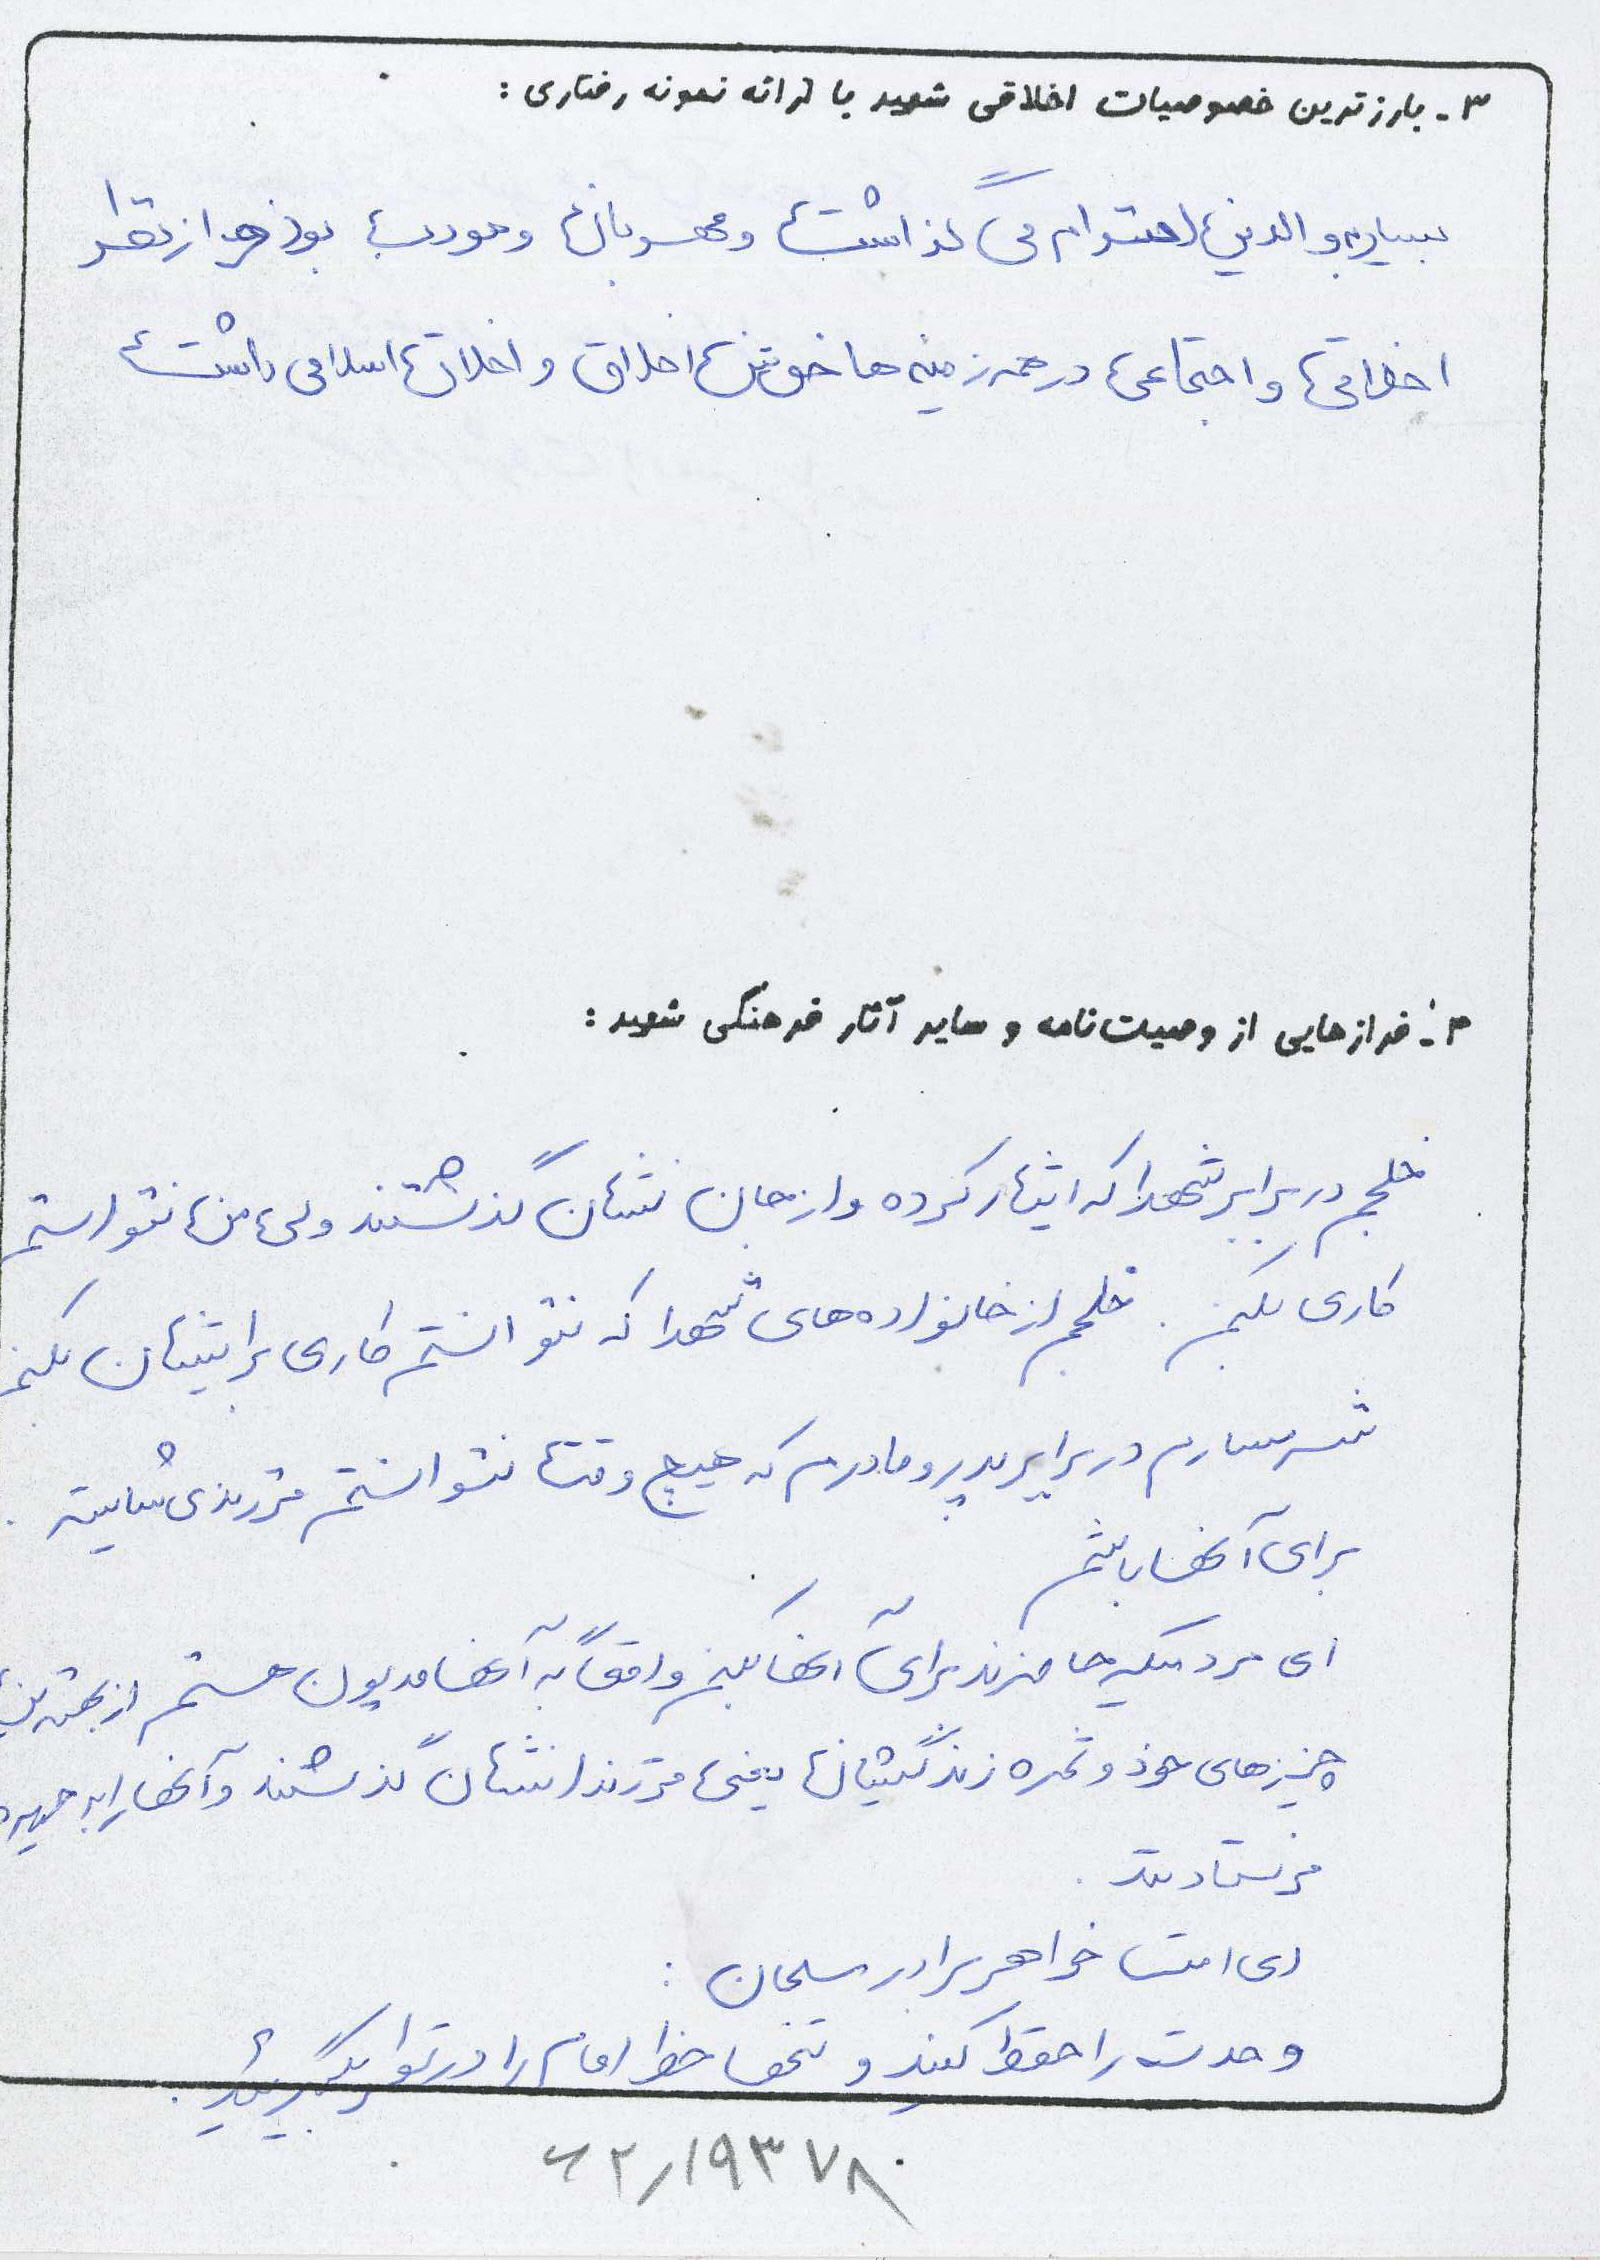 ۳- بارزترین خصوصیات اخلاقی شهید با ارائه نمونه رفتاری :
بسیار به والدین احترام می گذاشت و مهربان و مودب بود و هم از نظر
اخلاقی و اجتماعی در همه زمینه ها خوش اخلاق و اخلاق اسلامی داشت
۴- فرازهایی از وصیت‌نامه و سایر آثار فرهنگی شهید :
خجلم در برابر شهدا که ایثار کرده و از جان نشان گذشتند ولی من نتوانستم
کاری بکنم . خجلم از خانواده های شهدا که نتوانستم کاری برایشان بکنم
شرمسارم در برابر پدر و مادرم که هیچ وقت نتوانستم فرزندی شایسته .
برای آنها باشم
ای مردمیکه برای آنها بکنم واقعاً به آنها مدیون هستم از بهترین
چیزهای خود و ثمره زندگیشان یعنی فرزندانشان گذشتند و آنها را به جبهه
فرستادند .
ای امت خواهر برادر مسلمان :
وحدت را حفظ کنید و خط امام را در نظر بگیرید .
۶۲/۱۹۳۷۸